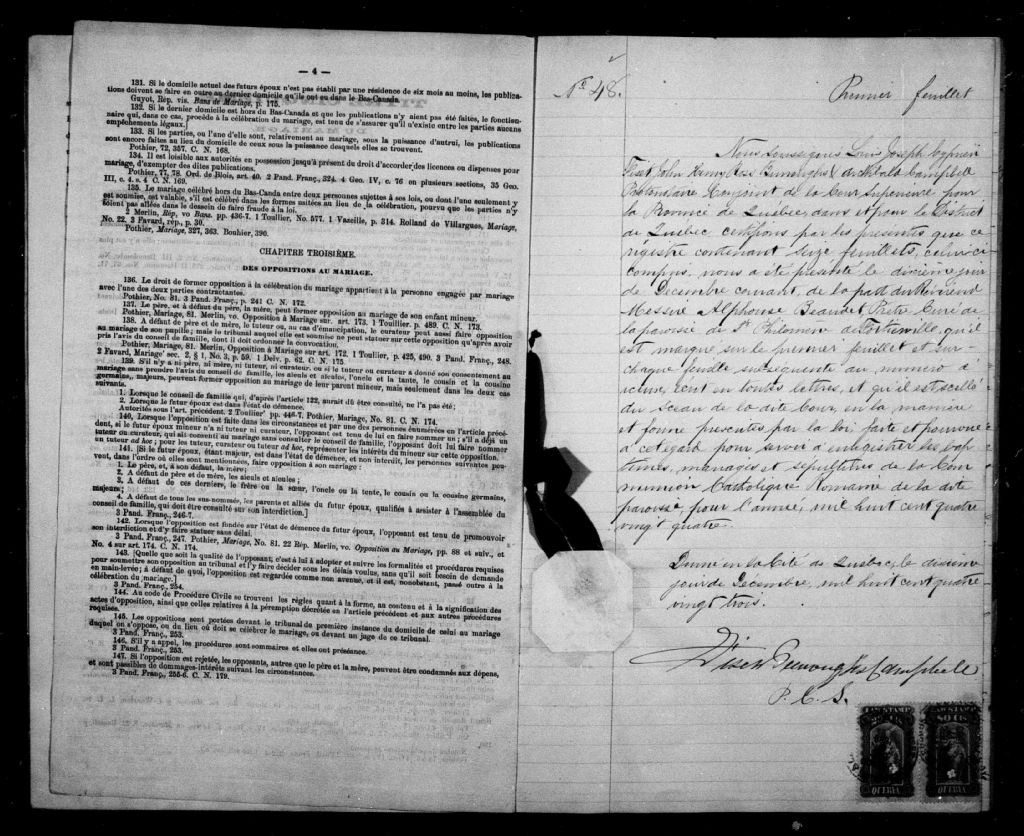 — 4 —
131. Si le domicile actuel des futurs époux n'est pas établi par une résidence de six mois au moins, les publica-
tions doivent se faire en outre au dernier domicile qu'ils ont eu dans le Bas-Canada.
Guyot, Rép. vis. Bans de Mariage, p. 175.
132. Si le dernier domicile est hors du Bas-Canada et que les publications n'y aient pas été faites, le fonction-
naire qui, dans ce cas, procède à la célébration du mariage, est tenu de s'assurer qu'il n'existe entre les parties aucuns
empêchements légaux.]
133. Si les parties, ou l'une d'elles, sont, relativement au mariage, sous la puissance d'autrui, les publications
sont encore faites au lieu du domicile de ceux sous la puissance desquels elles se trouvent.
Pothier, 72, 357. C. N. 168.
134. Il est loisible aux autorités en possession jusqu'à présent du droit d'accorder des licences ou dispenses pour
mariage, d'exempter des dites publications.
Pothier, 77, 78. Ord. de Blois, art. 40. 2 Pand. Franç., 324. 4 Geo. IV, c. 76 en plusieurs sections, 35 Geo.
III, c. 4. s. 4 C. N. 169.
135. Le mariage célébré hors du Bas-Canada entre deux personnes sujettes à ses lois, ou dont l'une seulement y
est soumise, est valable, s'il est célébré dans les formes usitées au lieu de la célébration, pourvu que les parties n'y
soient pas allées dans le dessein de faire fraude à la loi.
2 Merlin, Rép, vo Bans. pp. 436-7. 1 Toullier, No. 577. 1 Vazeille, p. 314. Rolland de Villargues, Mariage,
No. 22. 3 Favard, rép., p. 30.
Pothier, Mariage, 327, 363. Bouhier, 390.
CHAPITRE TROISIÈME.
DES OPPOSITIONS AU MARIAGE.
136. Le droit de former opposition à la célébration du mariage appartient à la personne engagée par mariage
avec l'une des deux parties contractantes.
Pothier, No. 81. 3 Pand. Franç., p. 241 C. N. 172.
137. Le père, et à défaut du père, la mère, peut former opposition au mariage de son enfant mineur.
Pothier, Mariage, 81. Merlin, vo. Opposition à Mariage sur. art. 173. 1 Touillier. p. 489. C. N. 173.
138. A défaut de père et de mère, le tuteur, ou, au cas d'émancipation, le curateur peut aussi faire opposition
au mariage de son pupille; mais le tribunal auquel elle est soumise ne peut statuer sur cette opposition qu'après avoir
pris l'avis du conseil de famille, dont il doit ordonner la convocation.
Pothier, Mariage, 81. Merlin, vo. Opposition à Mariage sur art. 172. 1 Toullier, p. 425, 490. 3 Pand. Franç., 248.
2 Favard, Mariage' sec. 2, § 1, No. 3, p. 59. 1 Delv. p. 62. C. N. 175.
139. S'il n'y a ni père, ni mère, ni tuteur, ni curateur, ou si le tuteur ou curateur a donné son consentement au
mariage sans prendre l'avis du conseil de famille, les aïeuls et aïeules, l'oncle et la tante, le cousin et la cousine
germains, majeurs, peuvent former opposition au mariage de leur parent mineur, mais seulement dans les deux cas
suivants.
1. Lorsque le conseil de famille qui, d'après l'article 122, aurait dû être consulté, ne l'a pas été;
2. Lorsque le futur époux est dans l'état de démence.
Autorités sous l'art. précédent. 2 Toullier' pp. 446-7. Pothier, Mariage, No. 81. C. N. 174.
140. Lorsque l'opposition est faite dans les circonstances et par une des personnes énumérées en l'article précé-
dent, si le futur époux mineur n'a ni tuteur ni curateur, l'opposant est tenu de lui en faire nommer un; s'il a déjà un
tuteur ou curateur, qui ait consenti au mariage sans consulter le conseil de famille, l'opposant doit lui faire nommer
un tuteur ad hoc; pour les tuteur, curateur ou tuteur ad hoc, représenter les intérêts du mineur sur cette opposition.
141. [Si le futur époux, étant majeur, est dans l'état de démence, et non interdit, les personnes suivantes peu-
vent, dans l'ordre où elles sont mentionnées, faire opposition à son mariage :
1. Le père, et, à son défaut, la mère;
2. A défaut de père et de mère, les aïeuls et aïeules;
3. A défaut de ces derniers, le frère ou la sœur, l'oncle ou la tante, le cousin ou la cousine germains,
majeurs;
4. A défaut de tous les sus-nommés, les parents et alliés du futur époux, qualifiés à assister à l'assemblée du
conseil de famille, qui doit être consulté sur son interdiction.]
3 Pand. Franç., 246-7.
142. Lorsque l'opposition est fondée sur l'état de démence du futur époux, l'opposant est tenu de promouvoir
son interdiction et d'y faire statuer sans délai.
3 Pand. Franç., 247. Pothier, Mariage, No. 81. 22 Rép. Merlin, vo. Opposition au Mariage, pp. 88 et suiv., et
No. 4 sur art. 174. C. N. 174.
143. [Quelle que soit la qualité de l'opposant, c'est à lui à adopter et suivre les formalités et procédures requises
pour soumettre son opposition au tribunal et l'y faire décider sous les délais voulus, sans qu'il soit besoin de demande
en main-levée; à défaut de quoi, l'opposition est regardée comme non avenue, et il est, nonobstant, passé outre à la
célébration du mariage.]
3 Pand. Franç., 254.
144. Au code de Procédure Civile se trouvent les règles quant à la forme, au contenu et à la signification des
actes d'opposition, ainsi que celles relatives à la péremption décrétée en l'article précédent et aux autres procédures
requises.
145. Les oppositions sont portées devant le tribunal de première instance du domicile de celui au mariage
duquel on s'oppose, ou du lieu où doit se célébrer le mariage, ou devant un juge de ce tribunal.
3 Pand. Franç., 253.
146. S'il y a appel, les procédures sont sommaires et elles ont préséance.
3 Pand. Franç., 253.
147. Si l'opposition est rejetée, les opposants, autres que le père et la mère, peuvent être condamnés aux dépens,
et sont passibles de dommages-intérêts suivant les circonstances.
3 Pand. Franç., 255-6. C. N. 179.
No 48.
Premier feuillet
Nous soussignés Louis Joseph Cyprien
Fiset John Henry Ross Burroughs & Archibald Campbell
Protonotaire Conjoint de la Cour Supérieure pour
la Province de Québec, dans et pour le District
de Québec certifions par les présentes que ce
régistre contenant seize feuillets, celui ci
compris, nous a été présenté le dixième jour
de Décembre courant, de la part du Révérend
Messire Alphonse Beaudet, Prêtre Curé de
la paroisse de St Philomène de Fortierville, qu'il
est marqué sur le premier feuillet et sur
chaque feuille subséquente du numéro d'
icelui, écrit en toutes lettres, et qu'il est scellé
du sceau de la dite Cour, en la manière
et forme prescrites par la loi faite et pourvue
à cet égard pour servir à enregistrer les bap-
têmes, mariages et sépultures de la Com
munion Catholique Romaine de la dite
paroisse, pour l'année, mil huit cent quatre
vingt quatre.
Donné en la Cité de Québec, le dixième
jour de Décembre, mil huit cent quatre
vingt trois.
Fiset Burroughs Campbell
P. C. S.
LAW STAMP
LAW STAMP
80 CTS
QUEBEC
QUEBEC